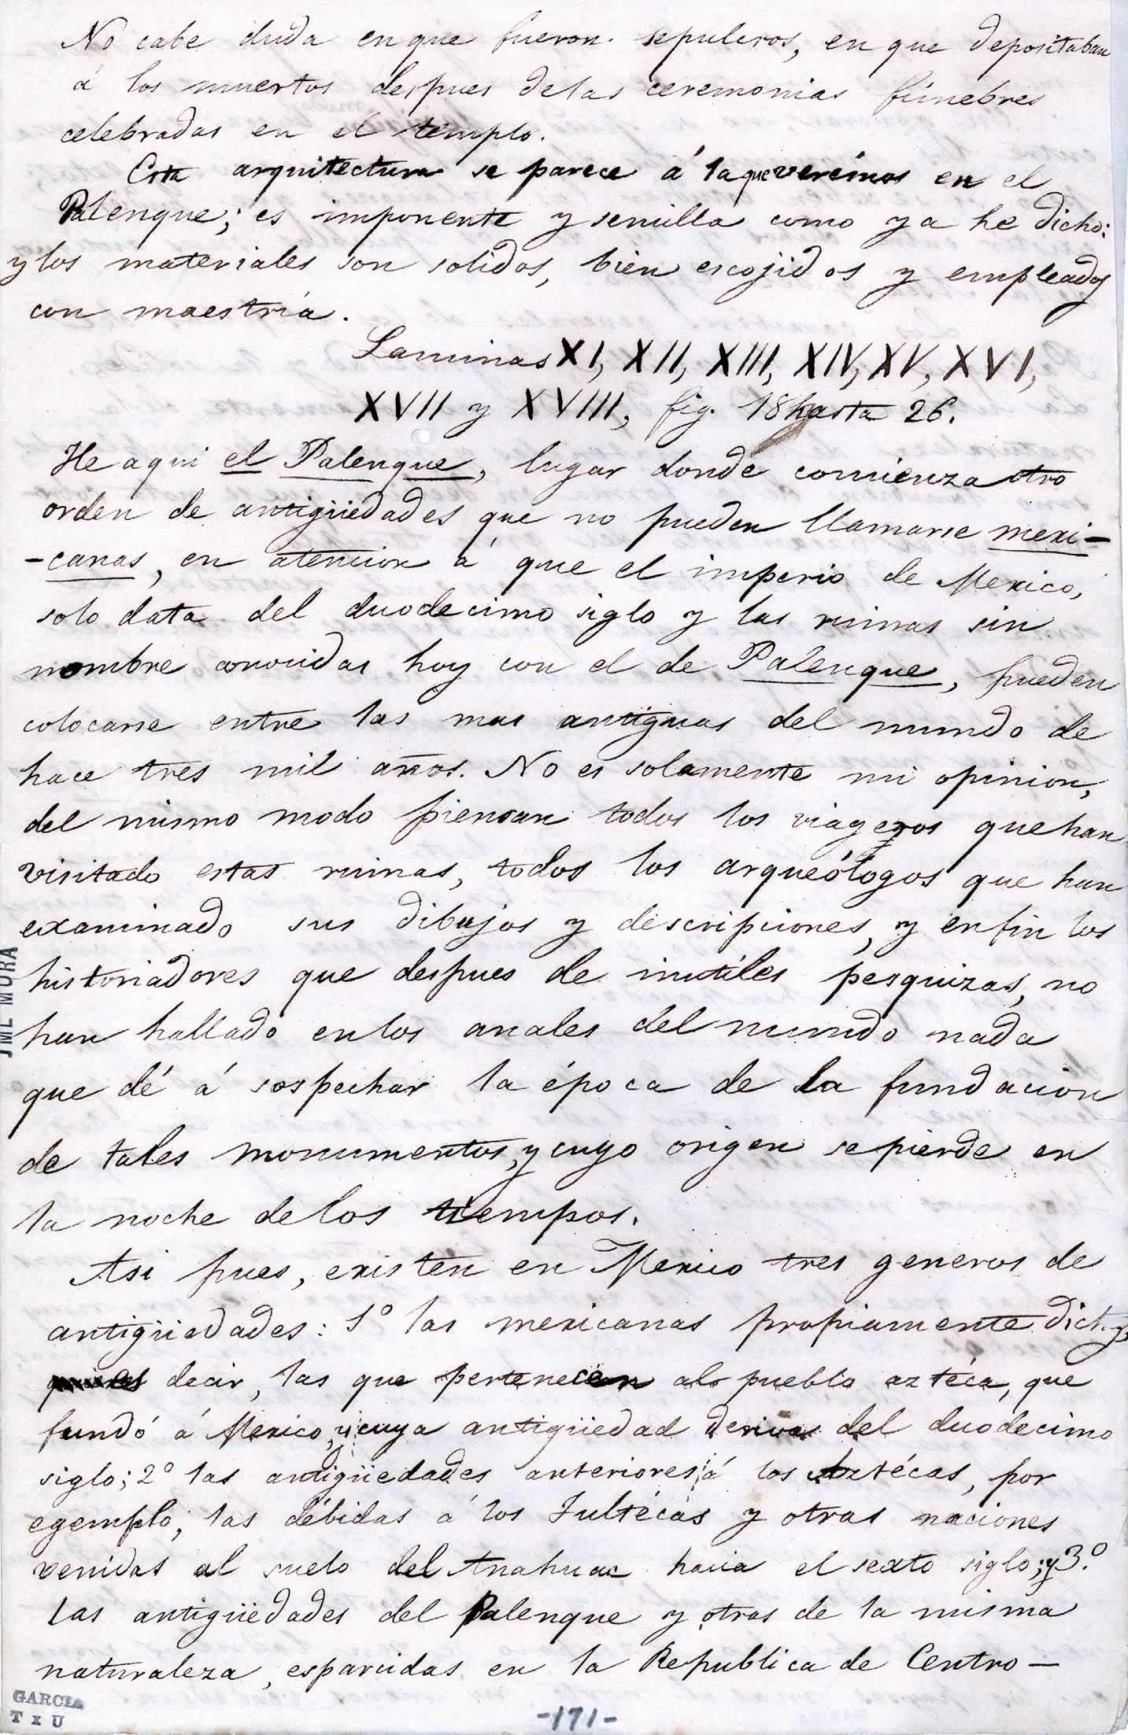 No cabe duda en que fueron sepulcros, en que depositaban
á los muertos despues de las ceremonias fúnebres
celebradas en el templo.
Esta arquitectura se parece á la que veremos en el
Palenque; es imponente y sencilla como ya he dicho:
y los materiales son solidos, bien escojidos y empleados
con maestría.
Laminas XI, XII, XIII, XIV, XV, XVI,
XVII y XVIII, fig. 18 hasta 26.
He aqui el Palenque, lugar donde comienza otro
orden de antigüedades que no pueden llamarse mexi-
-canas, en atencion á que el imperio de Mexico,
solo data del duodecimo siglo y las ruinas sin
nombre conocidas hoy con el de Palenque, pueden
colocarse entre las mas antiguas del mundo de
hace tres mil años. No es solamente mi opinion,
del mismo modo piensan todos los viageros que han
visitado estas ruinas, todos los arqueólogos que han
examinado sus dibujos y descripciones, y en fin los
historiadores que despues de inutiles pesquizas, no
han hallado en los anales del mundo nada
que dé á sospechar la época de la fundacion
de tales monumentos, y cuyo origen se pierde en
la noche de los tiempos.
Asi pues, existen en Mexico tres generos de
antigüedades: 1º las mexicanas propiamente dichas,
decir, las que pertenecen al pueblo aztéca, que
fundó á Mexico, y cuya antigüedad deriva del duodecimo
siglo; 2º las antigüedades anteriores á los Aztécas, por
egemplo, las débidas á los Tultécas y otras naciones
venidas al suelo del Anahuac hacia el sexto siglo; y 3.º
las antigüedades del Palenque y otras de la misma
naturaleza, esparcidas en la Republica de Centro-
JML MORA
GARCIA
T x U
-171-